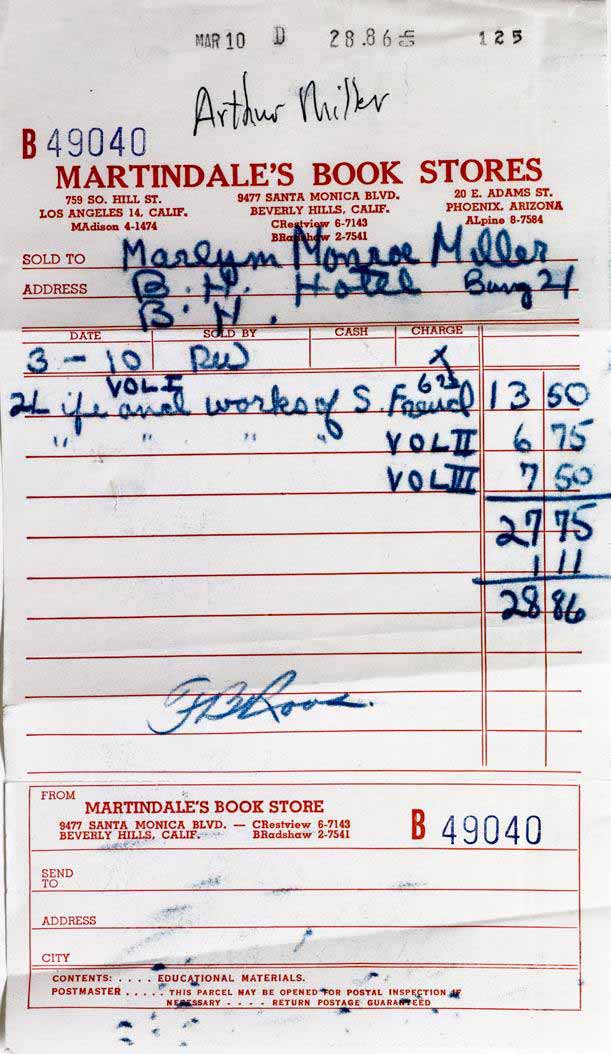 MAR 10 D 28.86 125
Arthur Miller
B 49040
MARTINDALE'S BOOK STORES
759 SO. HILL ST.
LOS ANGELES 14, CALIF.
MAdison 4-1474
9477 SANTA MONICA BLVD.
BEVERLY HILLS, CALIF.
CRestview 6-7143
BRadshaw 2-7541
20 E. ADAMS ST.
PHOENIX, ARIZONA
ALpine 8-7584
SOLD TO Marlym Monroe Miller
ADDRESS B. H. Hotel Bung 21
B. H.
DATE SOLD BY CASH CHARGE
3 - 10 RW X
VOL I
Life and works of S. Freud 13 50
" " " " VOL II 6 75
VOL III 7 50
27 75
1 11
28 86
FROM
MARTINDALE'S BOOK STORE
9477 SANTA MONICA BLVD. — CRestview 6-7143
BEVERLY HILLS, CALIF. BRadshaw 2-7541
B 49040
SEND
TO
ADDRESS
CITY
CONTENTS: . . . . EDUCATIONAL MATERIALS.
POSTMASTER . . . . . THIS PARCEL MAY BE OPENED FOR POSTAL INSPECTION IF
NECESSARY - - - - RETURN POSTAGE GUARANTEED